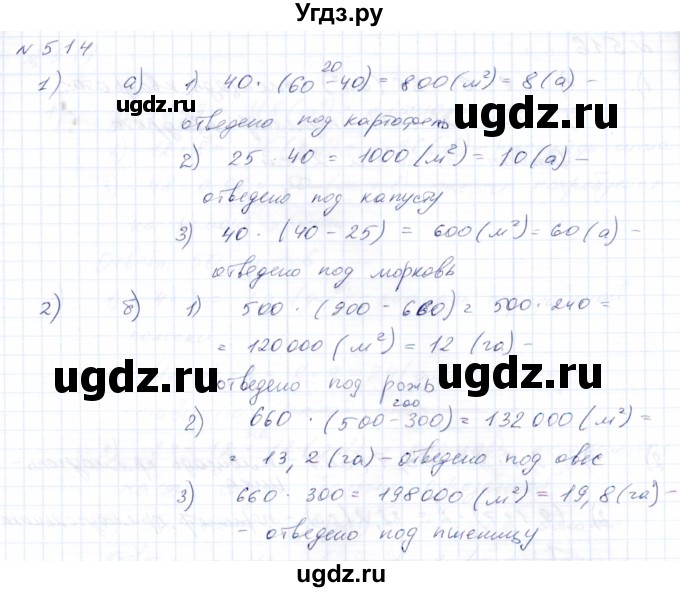 Угдз.ру
№514
1) а) 1) 40 · (60 - 40) = 800 (м²) = 8 (а) -
20
отведено под картофель
ugdz.ru
ugdz.ru
2) 25 · 40 = 1000 (м²) = 10 (а) -
отведено под капусту
3) 40 · (40 - 25) = 600 (м²) = 60 (а) -
отведено под морковь
2) б) 1) 500 · (900 - 660) = 500 · 240 =
= 120000 (м²) = 12 (га) -
ugdz.ru
ugdz.ru
отведено под рожь
200
2) 660 · (500 - 300) = 132000 (м²) =
= 13,2 (га) - отведено под овес
3) 660 · 300 = 198000 (м²) = 19,8 (га) -
- отведено под пшеницу
ugdz.ru